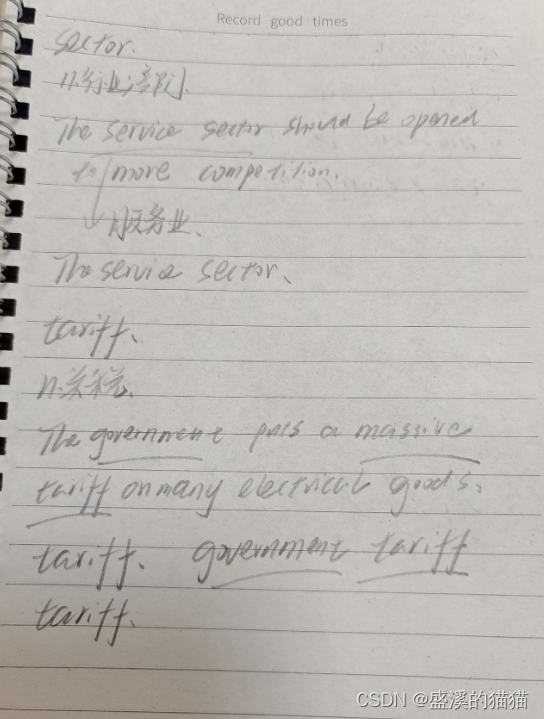 Record good times
sector.
n.行业;部门.
The service sector should be opened
to more competition.
服务业.
The service sector.
tariff.
n.关税.
The government puts a massive
tariff on many electrical goods.
tariff. government tariff
tariff.
CSDN @盛溪的猫猫